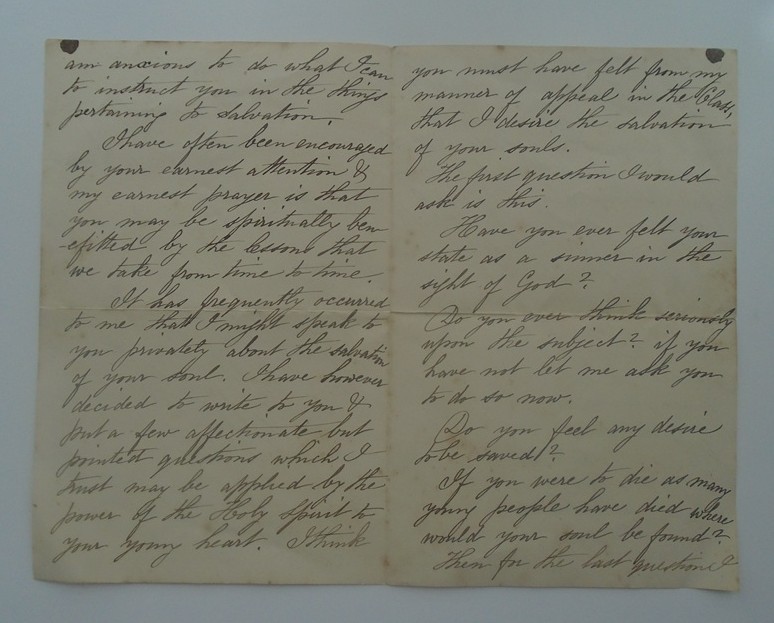 am anxious to do what I can
to instruct you in the things
pertaining to salvation.
I have often been encouraged
by your earnest attention &
my earnest prayer is that
you may be spiritually ben
-efitted by the lessons that
we take from time to time.
It has frequently occurred
to me that I might speak to
you privately about the salvation
of your soul. I have however
decided to write to you &
put a few affectionate but
pointed questions which I
trust may be applied by the
power of the Holy Spirit to
your young heart. I think
you must have felt from my
manner of appeal in the Class,
that I desire the salvation
of your souls.
The first question I would
ask is this.
Have you ever felt your
state as a sinner in the
sight of God?
Do you ever think seriously
upon the subject? if you
have not let me ask you
to do so now.
Do you feel any desire
to be saved?
If you were to die as many
young people have died where
would your soul be found?
Then for the last question I